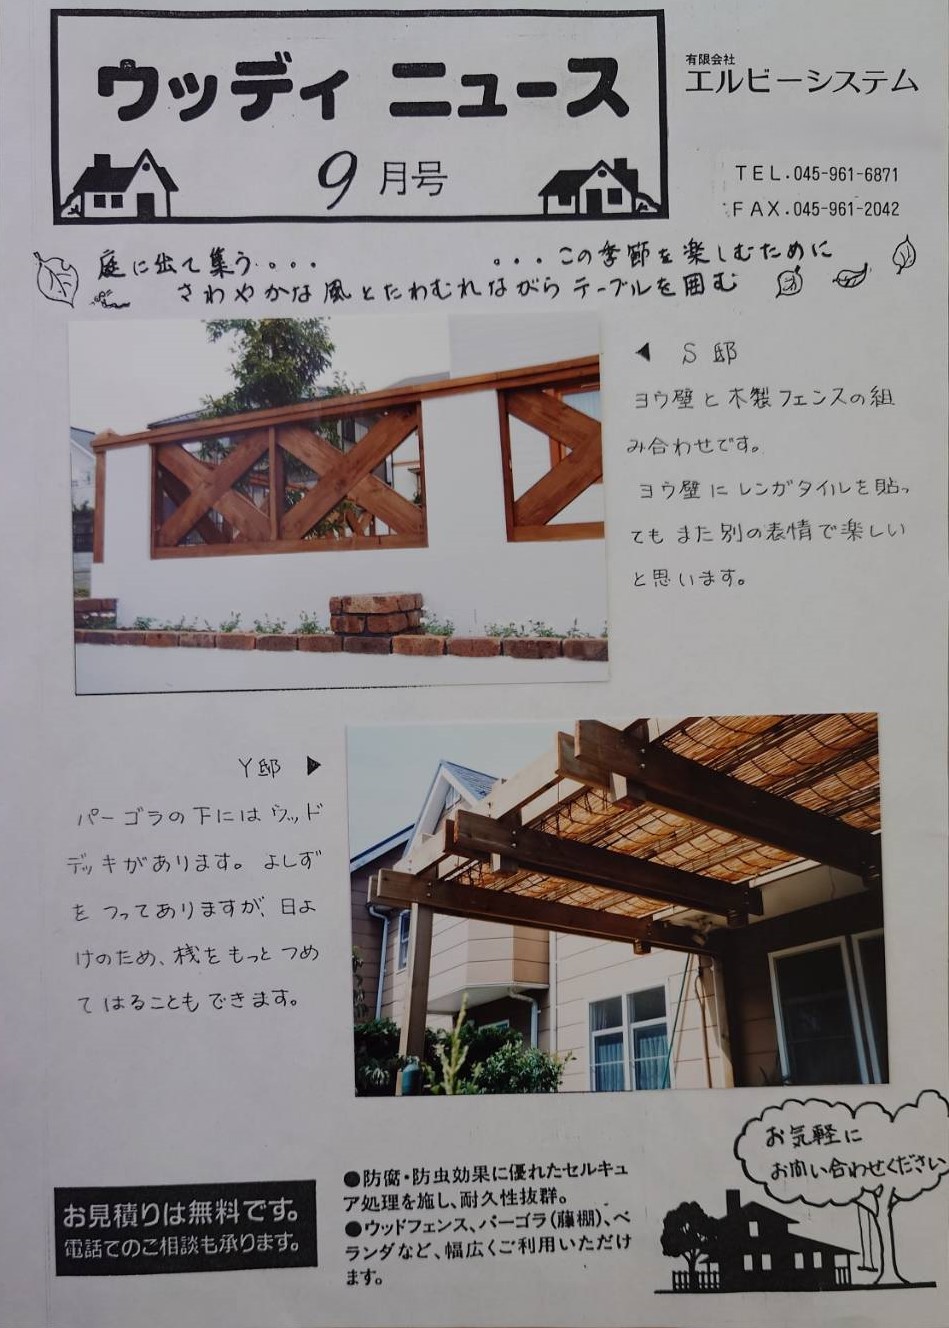 ウッディ ニュース
9月号
有限会社
エルビーシステム
TEL.045-961-6871
FAX.045-961-2042
庭に出て集う・・・ ・・・この季節を楽しむために
さわやかな風とたわむれながらテーブルを囲む
◀ S邸
ヨウ壁と木製フェンスの組
み合わせです。
ヨウ壁にレンガタイルを貼っ
てもまた別の表情で楽しい
と思います。
Y邸 ▶
パーゴラの下にはウッド
デッキがあります。よしず
をつってありますが、日よ
けのため、桟をもっとつめ
てはることもできます。
お見積りは無料です。
電話でのご相談も承ります。
●防腐・防虫効果に優れたセルキュ
ア処理を施し、耐久性抜群。
●ウッドフェンス、パーゴラ(藤棚)、ベ
ランダなど、幅広くご利用いただけ
ます。
お気軽に
お問い合わせください